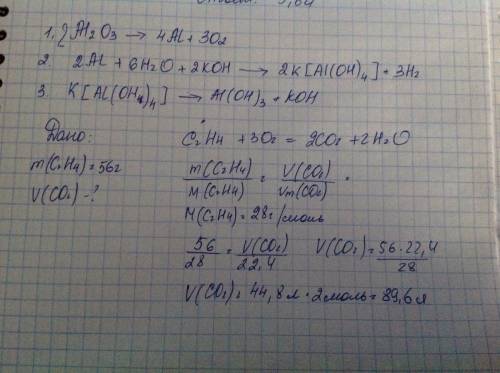 Ответ: 5,64
1. 2Al2O3 → 4Al + 3O2
2. 2Al + 6H2O + 2KOH → 2K[Al(OH)4] + 3H2
3. K[Al(OH)4] → Al(OH)3 + KOH
Дано:
m(C2H4) = 56г
V(CO2) - ?
C2H4 + 3O2 = 2CO2 + 2H2O
m(C2H4) / M(C2H4) = V(CO2) / Vm(CO2) =
M(C2H4) = 28г/моль
56 / 28 = V(CO2) / 22,4 V(CO2) = 56·22,4 / 28
V(CO2) = 44,8 л · 2моль = 89,6 л